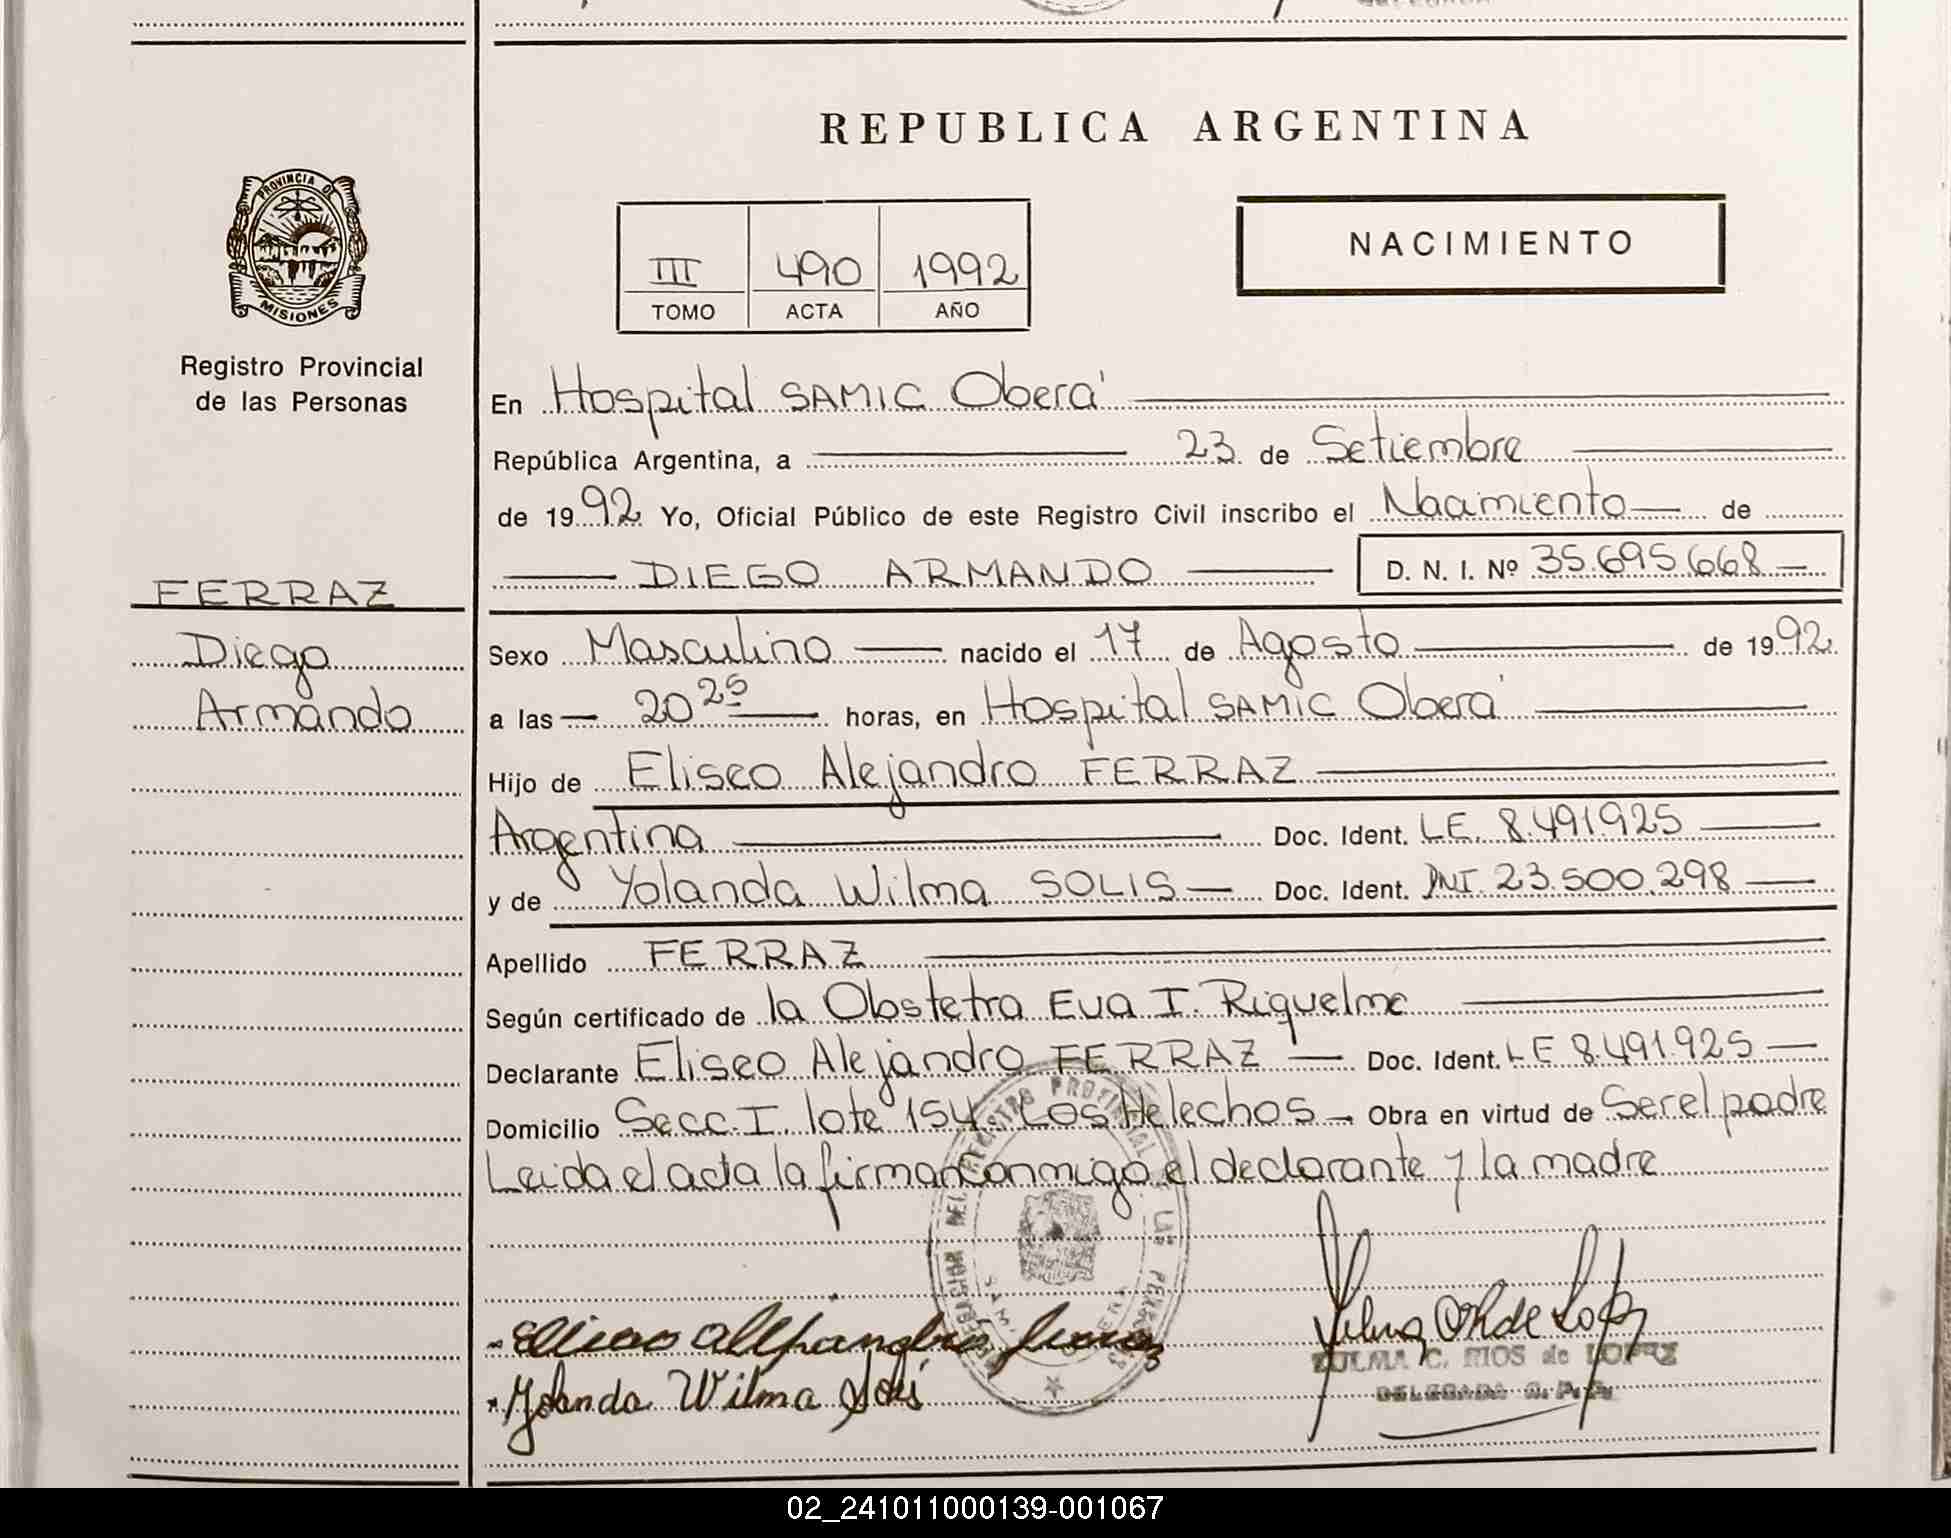 REPUBLICA ARGENTINA
PROVINCIA DE
MISIONES
Registro Provincial
de las Personas
III 490 1992
TOMO ACTA AÑO
NACIMIENTO
En Hospital SAMIC Oberá
República Argentina, a 23 de Setiembre
de 1992 Yo, Oficial Público de este Registro Civil inscribo el Nacimiento de
DIEGO ARMANDO D. N. I. Nº 35.695.668
FERRAZ
Diego
Armando
Sexo Masculino nacido el 17 de Agosto de 1992
a las 20 25 horas, en Hospital SAMIC Oberá
Hijo de Eliseo Alejandro FERRAZ
Argentina Doc. Ident. L.E. 8.491.925
y de Yolanda Wilma SOLIS Doc. Ident. DNI. 23.500.298
Apellido FERRAZ
Según certificado de la Obstetra Eva I. Riquelme
Declarante Eliseo Alejandro FERRAZ Doc. Ident. LE 8.491.925
Domicilio Secc. I. lote 154. Los Helechos Obra en virtud de Ser el padre
Leida el acta la firman conmigo el declarante y la madre
DELEGACION DEL REGISTRO PROVINCIAL DE LAS PERSONAS
Eliseo Alejandro Ferraz
Yolanda Wilma Solis
ZULMA C. RIOS de LOPEZ
DELEGADA R. P. P.
02_241011000139-001067